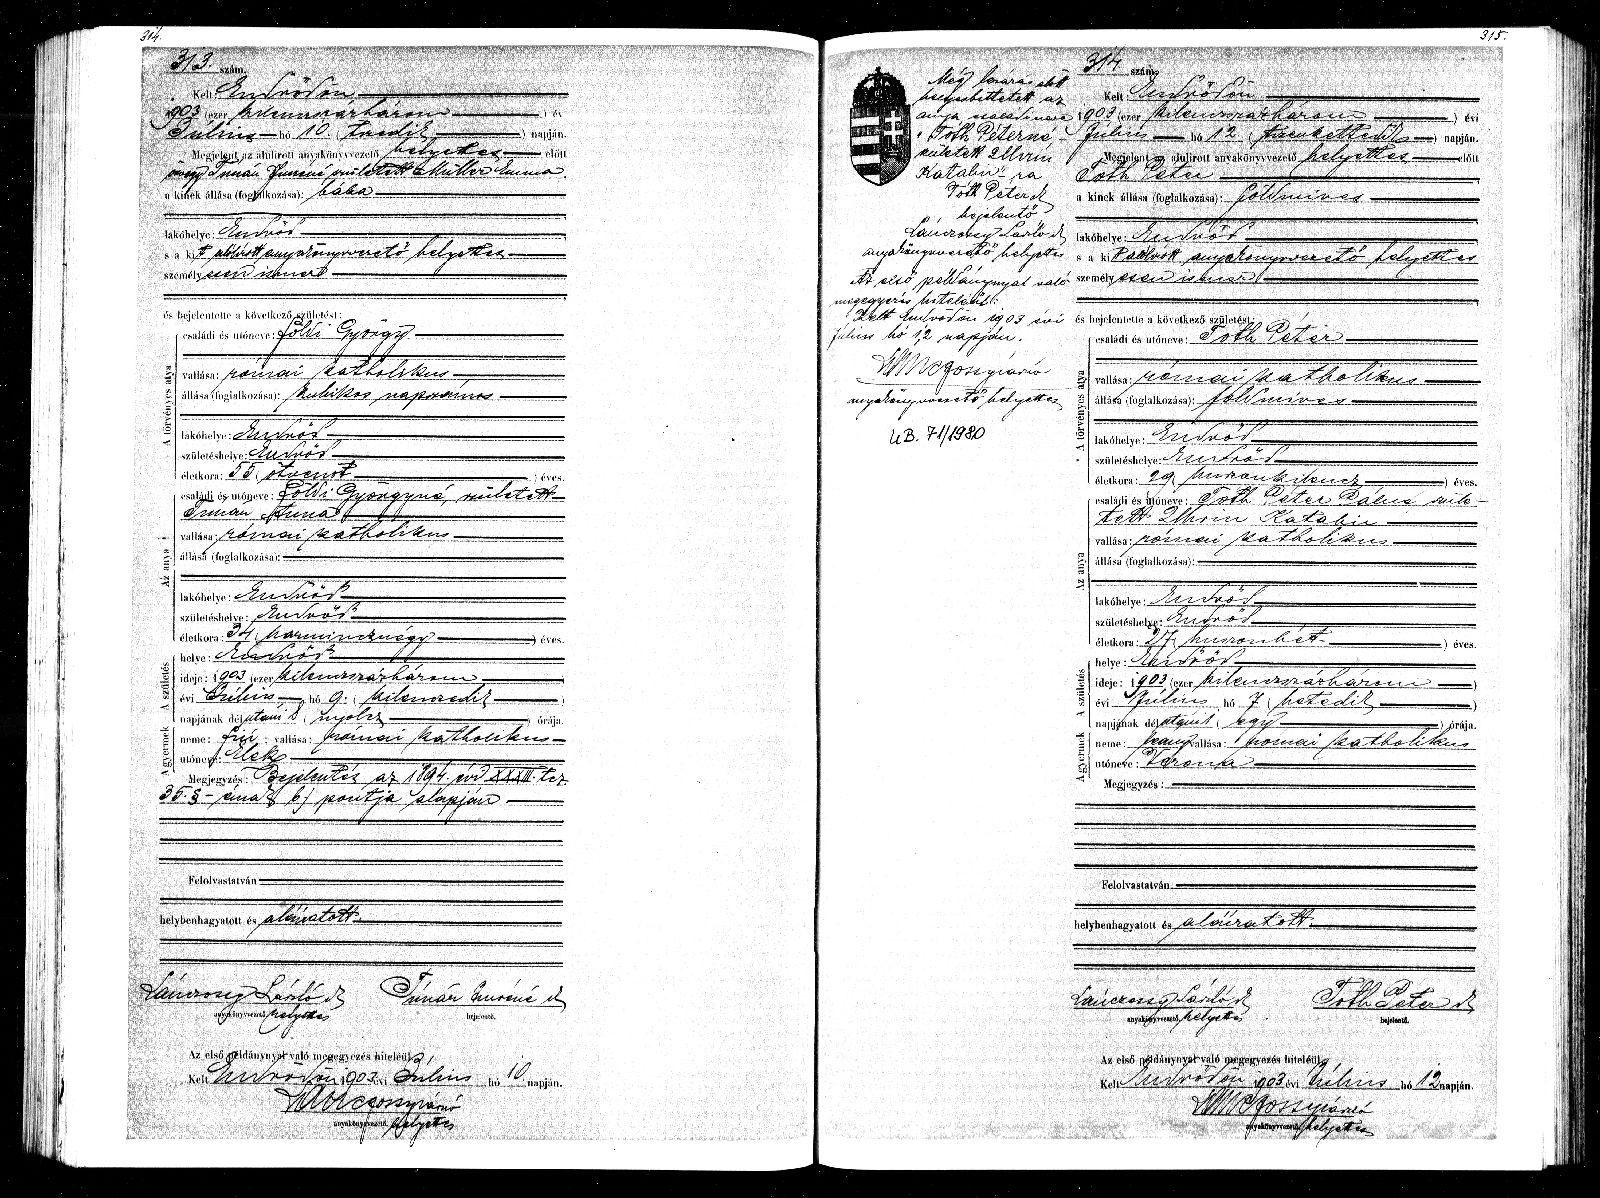 314.
313. szám.
Kelt Endrődön
1903 (ezer kilenczszázhárom ) évi
Július hó 10. (tizedik ) napján.
Megjelent az alulirott anyakönyvvezető helyettes előtt
özvegy Tímár Imréné született Müller Emma
a kinek állása (foglalkozása): bába
lakóhelye: Endrőd
s a kit alólirott anyakönyvvezető helyettes
személyesen ismert
és bejelentette a következő születést:
A törvényes atya
családi és utóneve: Földi György
vallása: római katholikus
állása (foglalkozása): kubikos napszámos
lakóhelye: Endrőd
születéshelye: Endrőd
életkora: 55 (ötvenöt ) éves.
Az anya
családi és utóneve: Földi Györgyné, született
Tímár Anna
vallása: római katholikus
állása (foglalkozása):
lakóhelye: Endrőd
születéshelye: Endrőd
életkora: 34 (harmincznégy ) éves.
A születés
helye: Endrőd
ideje: 1903 (ezer kilenczszázhárom )
évi Július hó 9. (kilenczedik )
napjának délutáni 8 (nyolcz ) órája.
A gyermek
neme: fiú; vallása: római katholikus
utóneve: Elek
Megjegyzés: Bejelentés az 1894. évi XXXIII. tcz
35. §-ának b) pontja alapján
Felolvastatván
helybenhagyatott és aláiratott.
Lánczossy László sk Tímár Imréné sk
anyakönyvvezető helyettes bejelentő.
Az első példánynyal való megegyezés hiteléül
Kelt Endrődön 1903 évi Július hó 10 napján.
anyakönyvvezető helyettes
315.
Még bezárás előtt
anya
"Tóth Péterné
született Uhrin
Katalin"-ra
Tóth Péter sk
bejelentő
Lánczossy László sk
anyakönyvvezető helyettes
Az első példánynyal való
megegyezés hiteléül:
Kelt Endrődön 1903 évi
Július hó 12 napján.
anyakönyvvezető helyettes
UB. 71/1980
314. szám.
Kelt Endrődön
1903 (ezer kilenczszázhárom ) évi
Július hó 12 (tizenkettedik ) napján.
Megjelent az alulirott anyakönyvvezető helyettes előtt
Tóth Péter
a kinek állása (foglalkozása): földmíves
lakóhelye: Endrőd
s a kit alólirott anyakönyvvezető helyettes
személyesen ismer
és bejelentette a következő születést:
A törvényes atya
családi és utóneve: Tóth Péter
vallása: római katholikus
állása (foglalkozása): földmíves
lakóhelye: Endrőd
születéshelye: Endrőd
életkora: 29 (huszonkilencz ) éves.
Az anya
családi és utóneve: Tóth Péter Pálné szüle-
tett Uhrin Katalin
vallása: római katholikus
állása (foglalkozása):
lakóhelye: Endrőd
születéshelye: Endrőd
életkora: 27 (huszonhét ) éves.
A születés
helye: Endrőd
ideje: 1903 (ezer kilenczszázhárom )
évi Július hó 7 (hetedik )
napjának délutáni 1 (egy ) órája.
A gyermek
neme: leány vallása: római katholikus
utóneve: Verona
Megjegyzés:
Felolvastatván,
helybenhagyatott és aláiratott.
Lánczossy László sk Tóth Péter sk
anyakönyvvezető helyettes bejelentő.
Az első példánynyal való megegyezés hiteléül
Kelt Endrődön 1903 évi Július hó 12 napján.
anyakönyvvezető helyettes